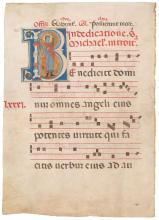 In dedicatione S.
Michaelis introit.
Benedicite domi
LXXXI.
num omnes angeli eius
potentes virtute qui fa
citis verbum eius ad au